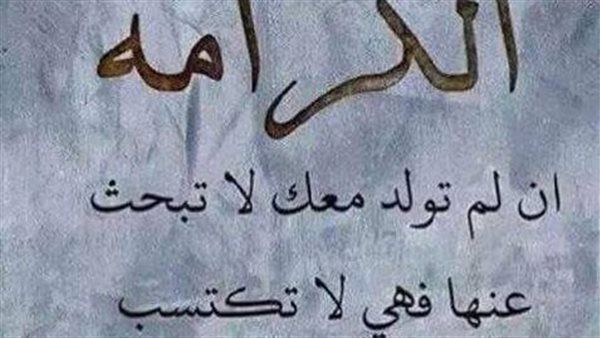 الكرامه
ان لم تولد معك لا تبحث
عنها فهي لا تكتسب